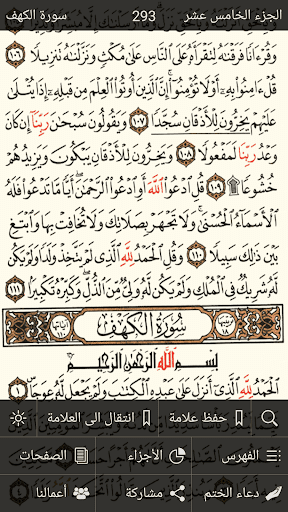 الجزء الخامس عشر 293 سورة الكهف
وَقُرْءَانًا فَرَقْنَٰهُ لِتَقْرَأَهُۥ عَلَى ٱلنَّاسِ عَلَىٰ مُكْثٍ وَنَزَّلْنَٰهُ تَنزِيلًا
١٠٦ قُلْ ءَامِنُوا۟ بِهِۦٓ أَوْ لَا تُؤْمِنُوٓا۟ إِنَّ ٱلَّذِينَ أُوتُوا۟ ٱلْعِلْمَ مِن قَبْلِهِۦٓ إِذَا يُتْلَىٰ
عَلَيْهِمْ يَخِرُّونَ لِلْأَذْقَانِ سُجَّدًا ١٠٧ وَيَقُولُونَ سُبْحَٰنَ رَبِّنَآ إِن كَانَ
وَعْدُ رَبِّنَا لَمَفْعُولًا ١٠٨ وَيَخِرُّونَ لِلْأَذْقَانِ يَبْكُونَ وَيَزِيدُهُمْ
خُشُوعًا ۩ ١٠٩ قُلِ ٱدْعُوا۟ ٱللَّهَ أَوِ ٱدْعُوا۟ ٱلرَّحْمَٰنَ أَيًّا مَّا تَدْعُوا۟ فَلَهُ
ٱلْأَسْمَآءُ ٱلْحُسْنَىٰ وَلَا تَجْهَرْ بِصَلَاتِكَ وَلَا تُخَافِتْ بِهَا وَٱبْتَغِ
بَيْنَ ذَٰلِكَ سَبِيلًا ١١٠ وَقُلِ ٱلْحَمْدُ لِلَّهِ ٱلَّذِى لَمْ يَتَّخِذْ وَلَدًا وَلَمْ يَكُن
لَّهُۥ شَرِيكٌ فِى ٱلْمُلْكِ وَلَمْ يَكُن لَّهُۥ وَلِىٌّ مِّنَ ٱلذُّلِّ وَكَبِّرْهُ تَكْبِيرًۢا ١١١
سُورَةُ الْكَهْفِ
بِسْمِ ٱللَّهِ ٱلرَّحْمَٰنِ ٱلرَّحِيمِ
ٱلْحَمْدُ لِلَّهِ ٱلَّذِىٓ أَنزَلَ عَلَىٰ عَبْدِهِ ٱلْكِتَٰبَ وَلَمْ يَجْعَل لَّهُۥ عِوَجَا ١
حفظ علامة انتقال الى العلامة
الفهرس الأجزاء الصفحات
دعاء الختم مشاركة أعمالنا